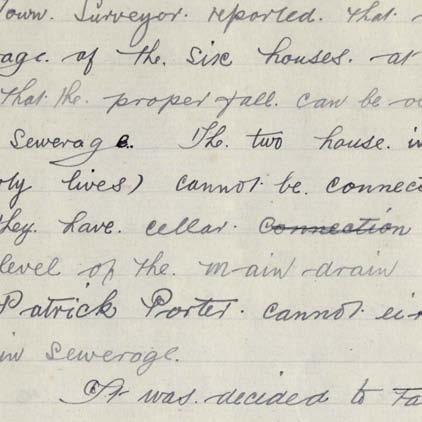 Town. Surveyor. reported. that.
age. of the. six houses. at
that. the. proper fall. can be
Sewerage. The. two house. in
lives) cannot. be. connect
they. have. cellar. ~~connection~~
level of the. main drain
Patrick Porter. cannot
in Sewerage.
It was. decided to